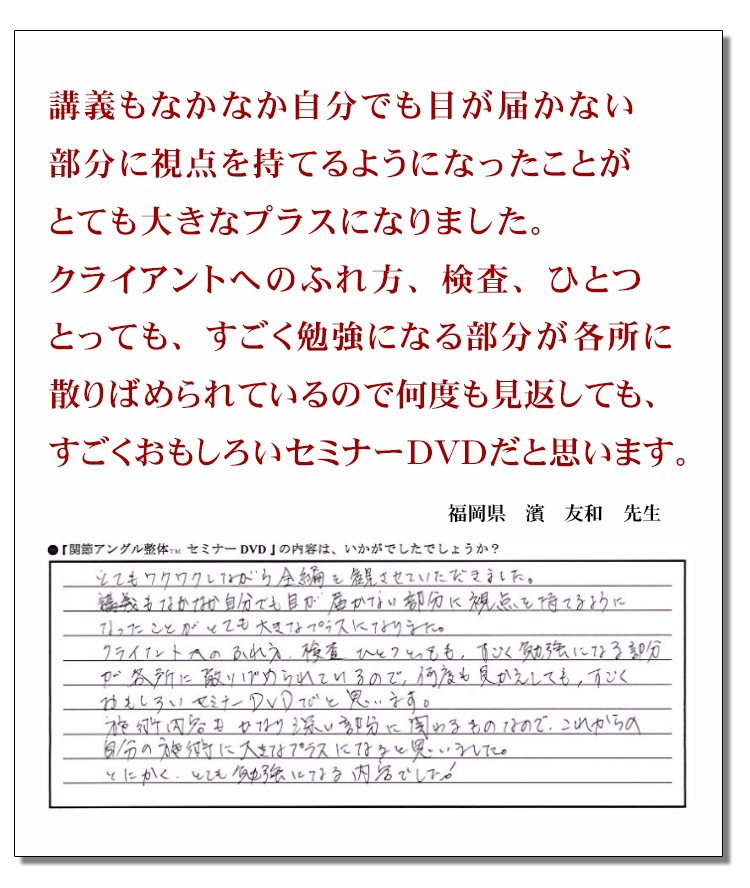 講義もなかなか自分でも目が届かない
部分に視点を持てるようになったことが
とても大きなプラスになりました。
クライアントへのふれ方、検査、ひとつ
とっても、すごく勉強になる部分が各所に
散りばめられているので何度も見返しても、
すごくおもしろいセミナーDVDだと思います。
福岡県 濱 友和 先生
●『関節アングル整体TM セミナーDVD』の内容は、いかがでしたでしょうか？
とてもワクワクしながら全編を観させていただきました。
講義もなかなか自分でも目が届かない部分に視点を持てるように
なったことがとても大きなプラスになりました。
クライアントへのふれ方、検査ひとつとっても、すごく勉強になる部分
が各所に散りばめられているので、何度も見かえしても、すごく
おもしろいセミナーDVDだと思います。
施術内容もかなり深い部分に関わるものなので、これからの
自分の施術に大きなプラスになると思いました。
とにかく、とても勉強になる内容でした!